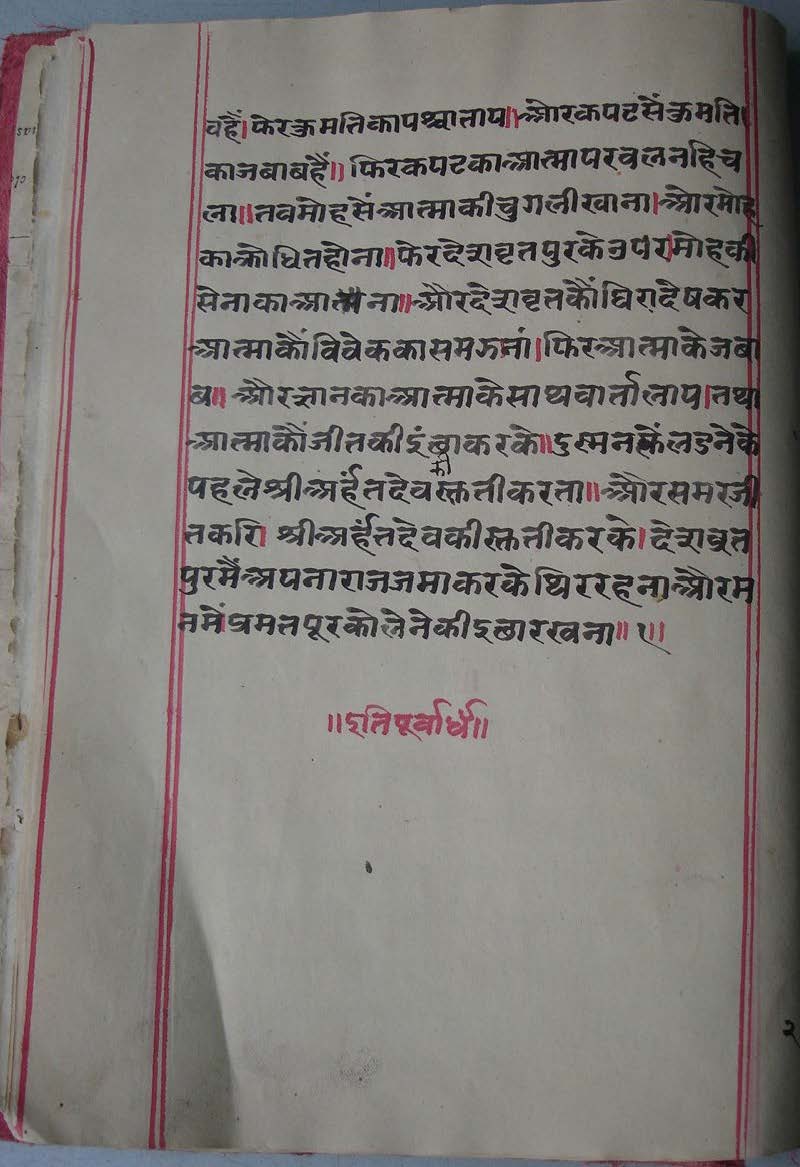 वहैं। फेरकुमतिकापश्चाताप॥ औरकपटसेंकुमति।
काजबाबहैं॥ फिरकपटकाआत्मापरवलनहिच
ला॥ तवमोहसेंआत्माकीचुगलीखाना। औरमोह
काक्रोधितहोना॥ फेरदेशवृतपुरकेउपर।मोहकी
सेनाकाआना॥ औरदेशवृतकौंघिरादेषकर
आत्माकौंविवेककासमझनां। फिरआत्माकेजबा
ब॥ औरज्ञानकाआत्माकेसाथवार्तालाप। तथा
आत्माकौंजीतकीइंछाकरके॥ दुस्मनसेंलडनेके
पहलेश्रीअर्हंतदेवकीस्तुतीकरता॥ औरसमरजी
तकरि। श्रीअर्हंतदेवकीस्तुतीकरके। देशव्रत
पुरमैंअपनाराजजमाकरकेथिररहनाऔरम
नमेंप्रमतपूरकोलेनेकीइछारखना॥ १॥
॥इतिपूर्वार्धं॥
२